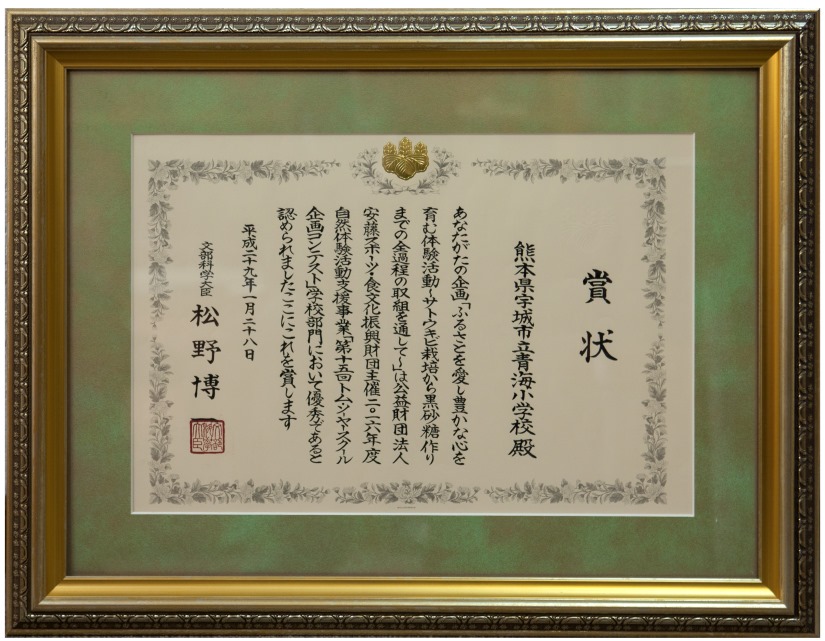 賞状
熊本県宇城市立青海小学校殿
あなたがたの企画「ふるさとを愛し豊かな心を
育む体験活動～サトウキビ栽培から黒砂糖作り
までの全過程の取組を通して～」は公益財団法人
安藤スポーツ・食文化振興財団主催二〇一六年度
自然体験活動支援事業「第十五回トム・ソーヤースクール
企画コンテスト」学校部門において優秀であると
認められましたここにこれを賞します
平成二十九年一月二十八日
文部科学大臣 松野博